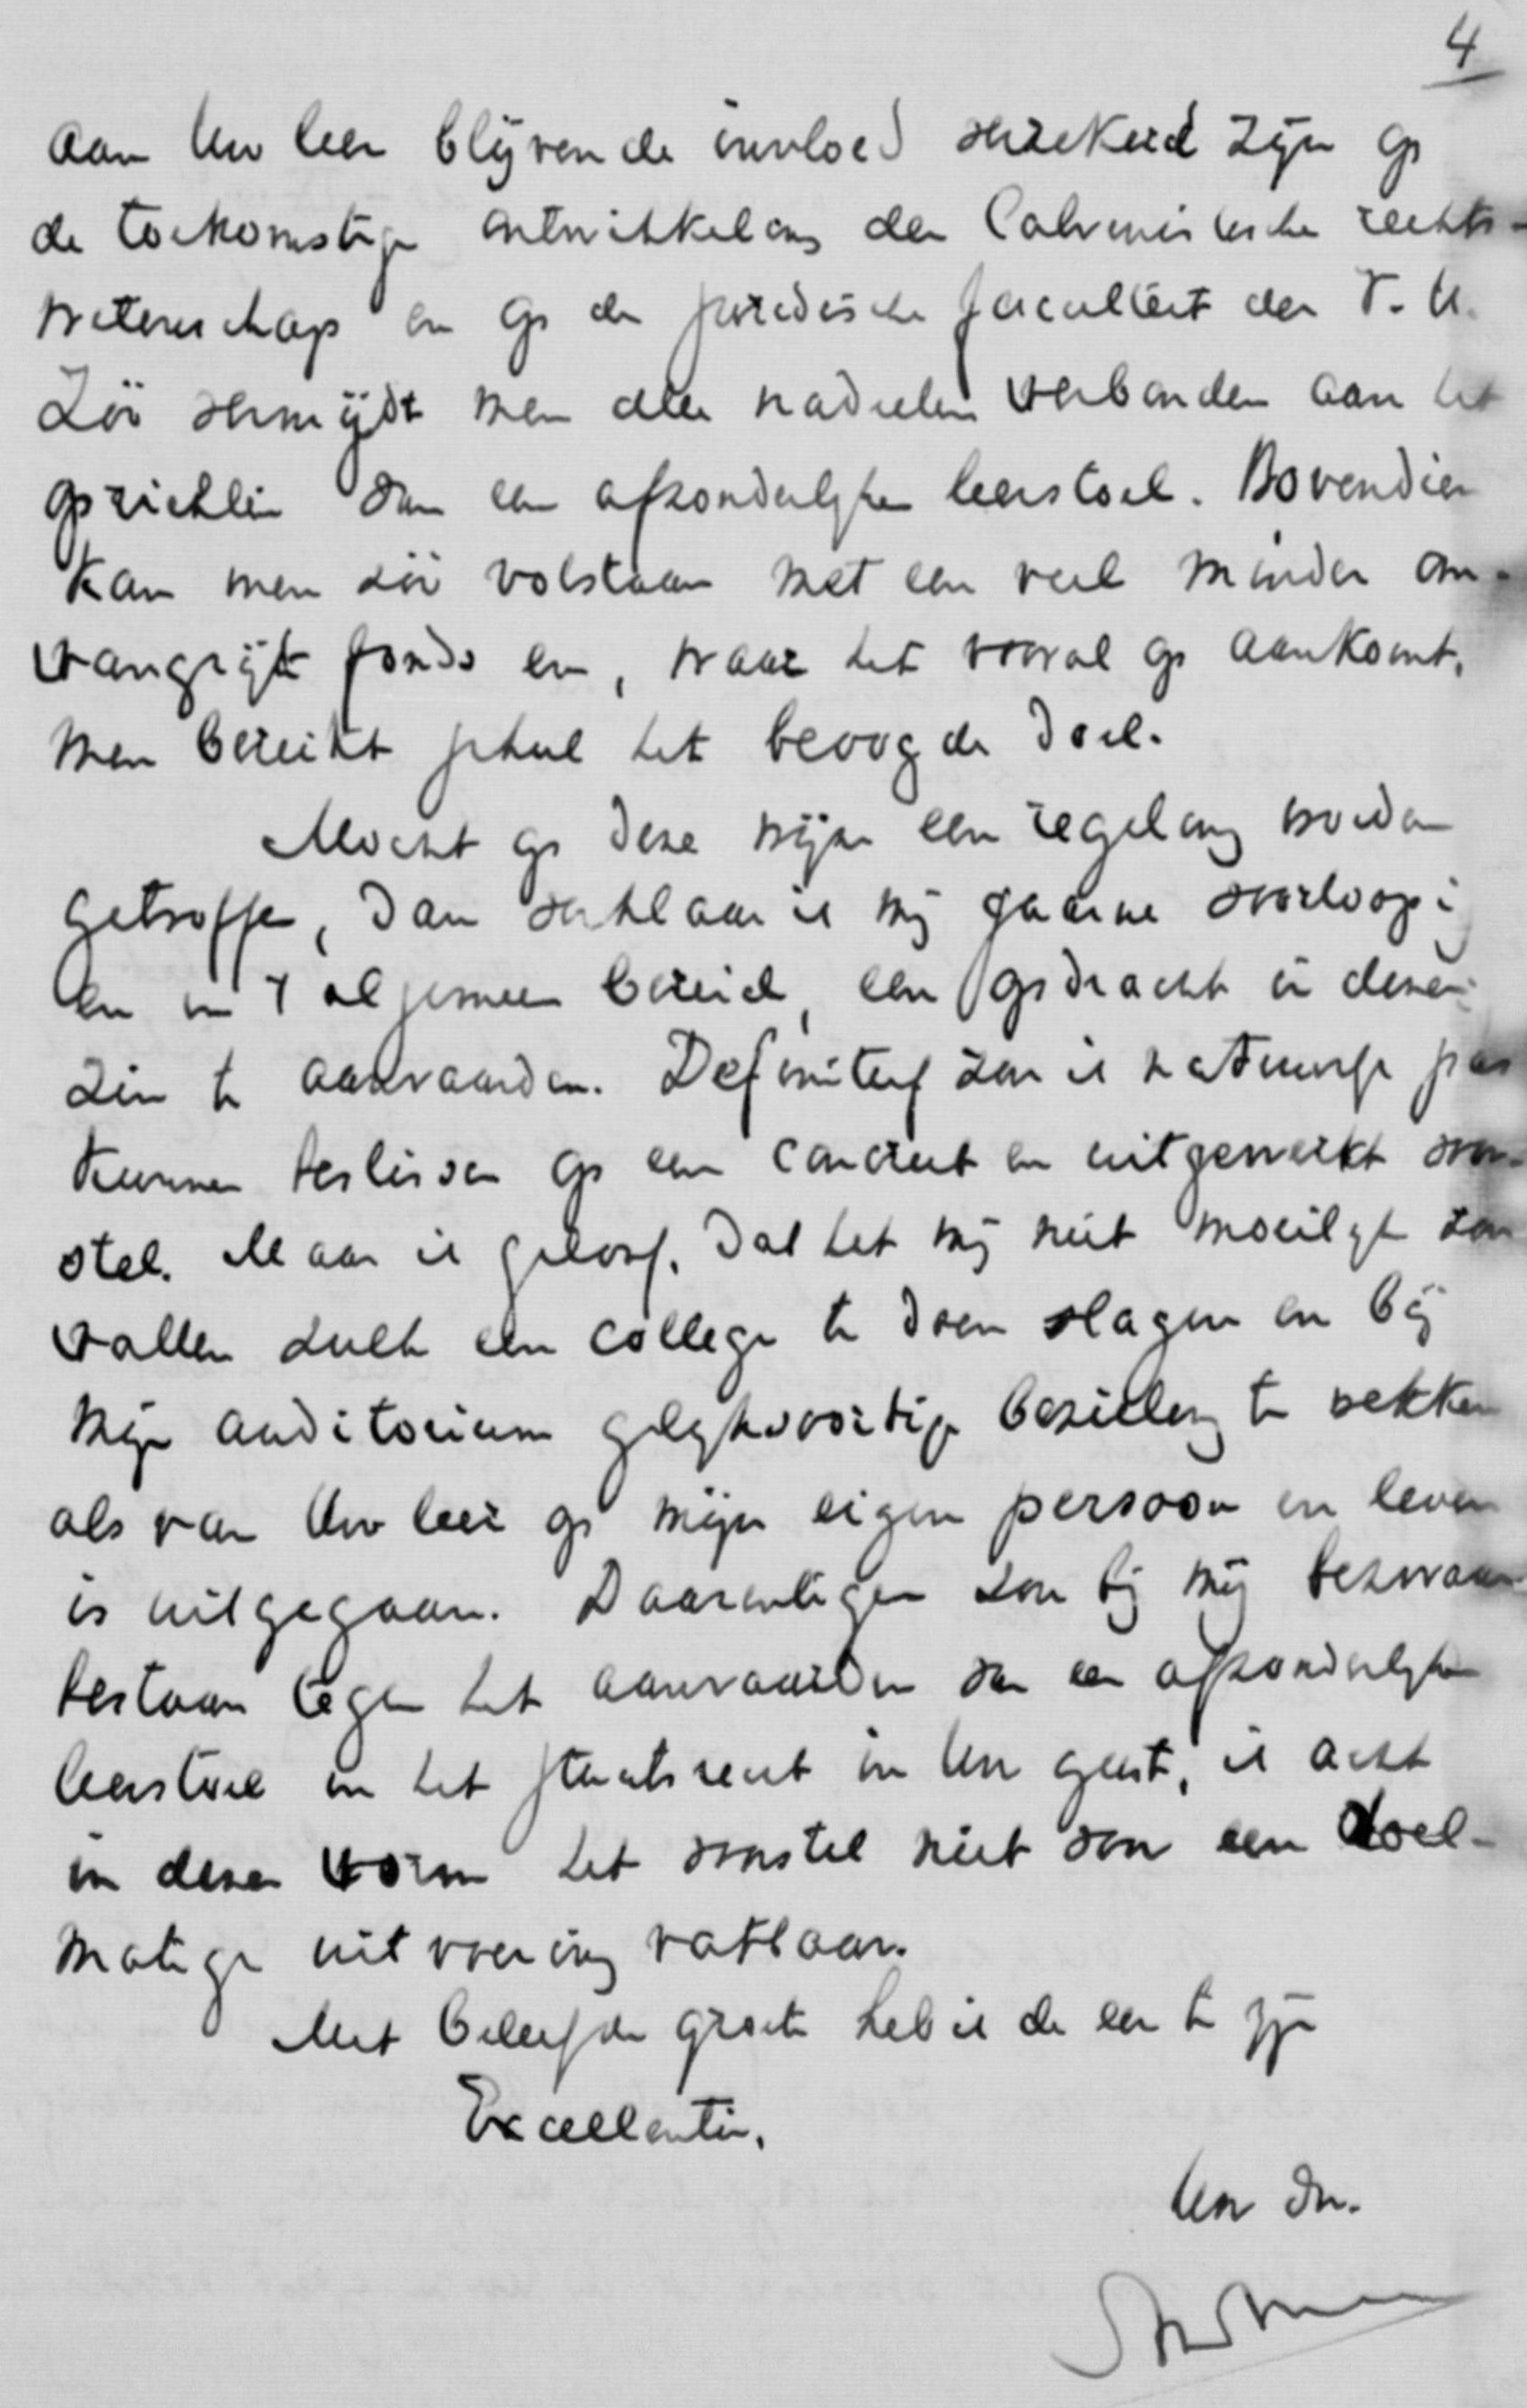 4
aan Uw leer blijvende invloed verzekerd zijn op
de toekomstige ontwikkeling der Calvinistische rechts-
wetenschap en op de juridische faculteit der V. U.
Zóó vermijdt men alle nadeelen verbonden aan het
oprichten van een afzonderlijken leerstoel. Bovendien
kan men zóó volstaan met een veel minder om-
vangrijk fonds en, waar het vooral op aankomt,
men bereikt geheel het beoogde doel.
Mocht op deze wijze een regeling worden
getroffen, dan verklaar ik mij gaarne voorloopig
en in 't algemeen bereid, een opdracht in dezen
zin te aanvaarden. Definitief zou ik natuurlijk pas
kunnen beslissen op een concreet en uitgewerkt voor-
stel. Maar ik geloof, dat het mij niet moeilijk zou
vallen zulk een college te doen slagen en bij
mijn auditorium gelijksoortige bezieling te wekken
als van Uw leer op mijn eigen persoon en leven
is uitgegaan. Daarentegen zou bij mij bezwaar
bestaan tegen het aanvaarden van een afzonderlijken
leerstoel in het staatsrecht in Uw geest, ik acht
in dezen vorm het voorstel niet voor een doel-
matige uitvoering vatbaar.
Met beleefde groeten heb ik de eer te zijn
Excellentie,
Uw dn.